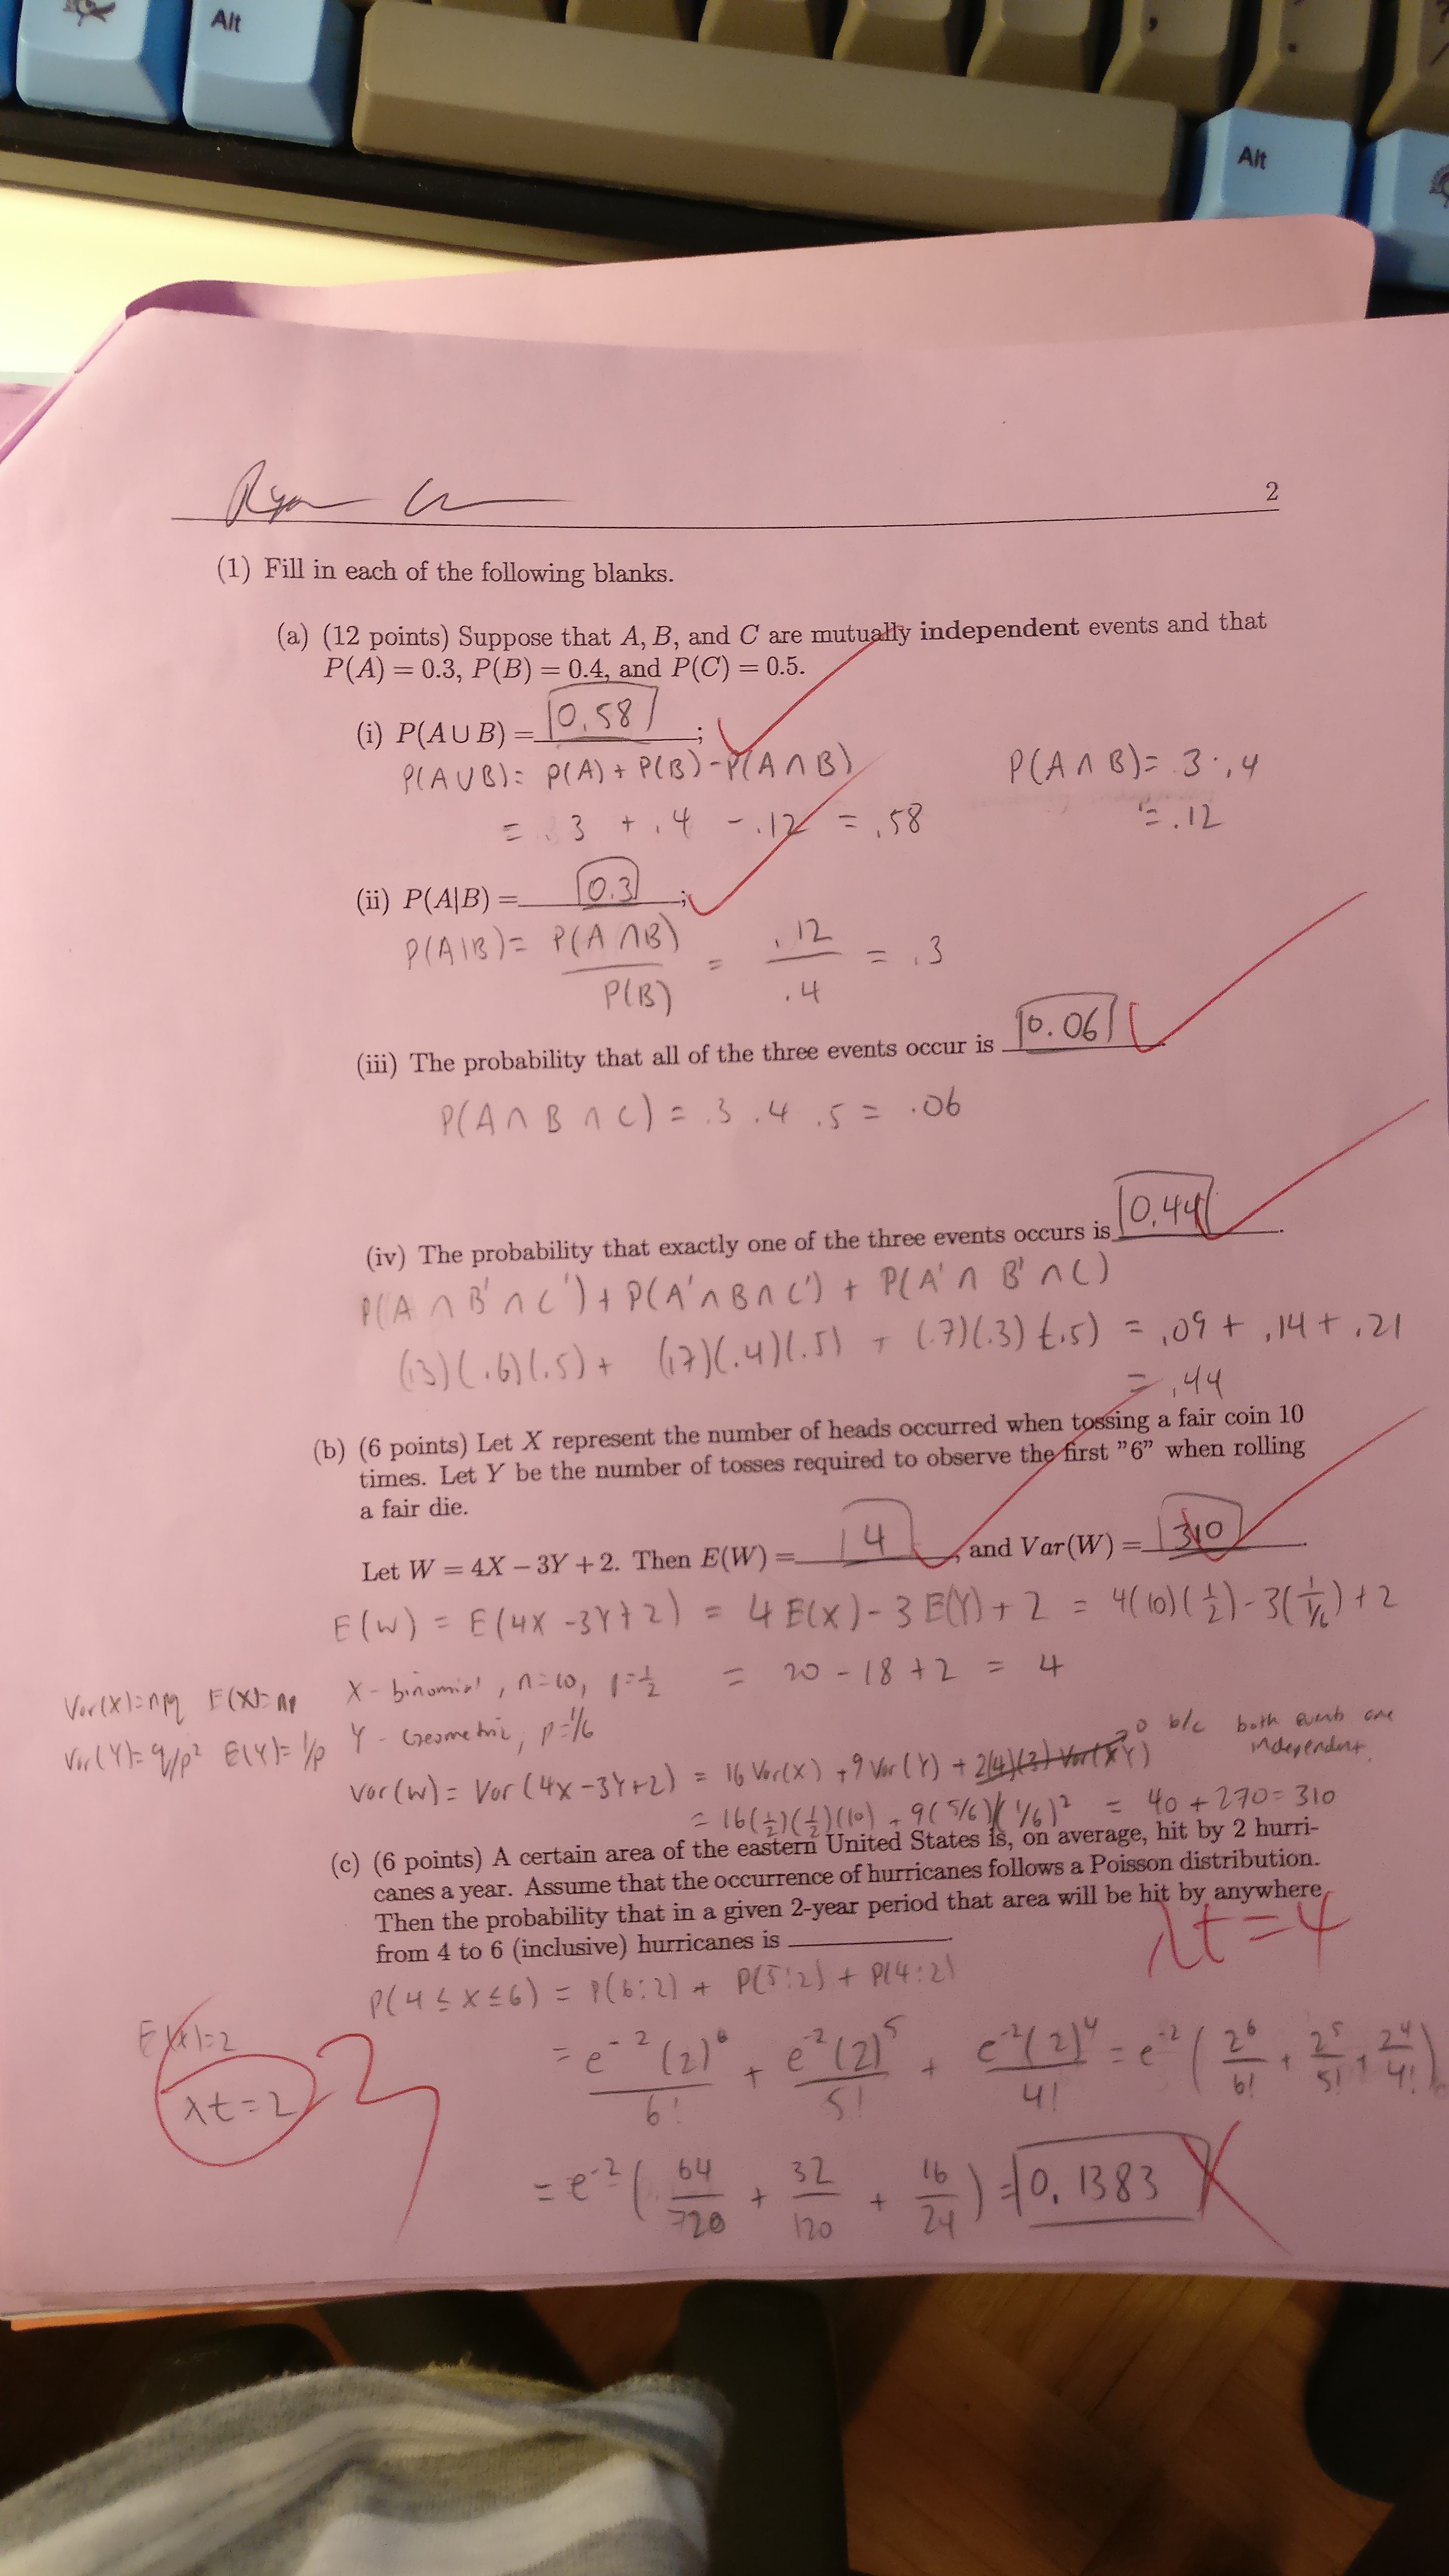 Alt
Alt
Ryan
2
(1) Fill in each of the following blanks.
(a) (12 points) Suppose that A, B, and C are mutually independent events and that
P(A) = 0.3, P(B) = 0.4, and P(C) = 0.5.
(i) P(A ∪ B) = 0.58 ;
P(A ∪ B) = P(A) + P(B) - P(A ∩ B)
P(A ∩ B) = .3 · .4
= .3 + .4 - .12 = .58
= .12
(ii) P(A|B) = 0.3 ;
P(A|B) = P(A ∩ B) / P(B) = .12 / .4 = .3
(iii) The probability that all of the three events occur is 0.06 .
P(A ∩ B ∩ C) = .3 .4 .5 = .06
(iv) The probability that exactly one of the three events occurs is 0.44 .
P(A ∩ B' ∩ C') + P(A' ∩ B ∩ C') + P(A' ∩ B' ∩ C)
(.3)(.6)(.5) + (.7)(.4)(.5) + (.7)(.3)(.5) = .09 + .14 + .21
= .44
(b) (6 points) Let X represent the number of heads occurred when tossing a fair coin 10
times. Let Y be the number of tosses required to observe the first ”6” when rolling
a fair die.
Let W = 4X − 3Y + 2. Then E(W) = 4 , and Var(W) = 310 .
E(W) = E(4X - 3Y + 2) = 4 E(X) - 3 E(Y) + 2 = 4(10)(1/2) - 3(1/1/6) + 2
X - binomial, n=10, p=1/2 = 20 - 18 + 2 = 4
Var(X)=npq E(X)=np
Y - Geometric, p=1/6
Var(Y)=q/p² E(Y)=1/p
0 b/c both events are
independent.
Var(W) = Var(4X-3Y+2) = 16 Var(X) + 9 Var(Y) + 2(4)(3) Var(XY)
= 16(1/2)(1/2)(10) + 9(5/6)/(1/6)² = 40 + 270 = 310
(c) (6 points) A certain area of the eastern United States is, on average, hit by 2 hurri-
canes a year. Assume that the occurrence of hurricanes follows a Poisson distribution.
Then the probability that in a given 2-year period that area will be hit by anywhere
from 4 to 6 (inclusive) hurricanes is .
λt=4
P(4 ≤ X ≤ 6) = P(6:2) + P(5:2) + P(4:2)
E(X)=2
λt=2
= e⁻²(2)⁶/6! + e⁻²(2)⁵/5! + e⁻²(2)⁴/4! = e⁻²(2⁶/6! + 2⁵/5! + 2⁴/4!)
= e⁻²(64/720 + 32/120 + 16/24) = 0.1383